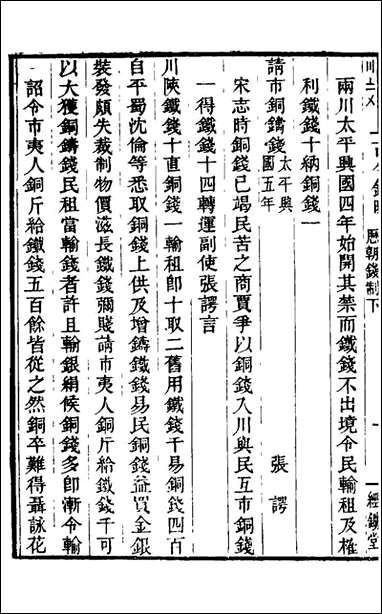 歷朝錢制下
一
經鉏堂
兩川太平興國四年始開其禁而鐵錢不出境令民輸租及榷
利鐵錢十納銅錢一
請市銅鑄錢 太平興國五年 張諤
宋志時銅錢已竭民苦之商賈爭以銅錢入川與民互市銅錢
一得鐵錢十四轉運副使張諤言
川陝鐵錢十直銅錢一輸租卽十取二舊用鐵錢千易銅錢四百
自平蜀沈倫等悉取銅錢上供及增鑄鐵錢易民銅錢益買金銀
裝發頗失裁制物價滋長鐵錢彌賤請市夷人銅斤給鐵錢千可
以大獲銅鑄錢民租當輸錢者許且輸銀絹候銅錢多卽漸令輸
詔令市夷人銅斤給鐵錢五百餘皆從之然銅卒難得聶詠花